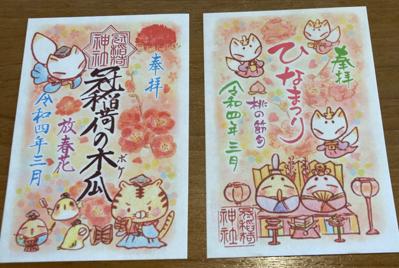 奉拝
冠稲荷神社
冠稲荷の木瓜
ボケ
放春花
令和四年三月
奉拝
ひなまつり
桃の節句
令和四年三月
冠稲荷神社